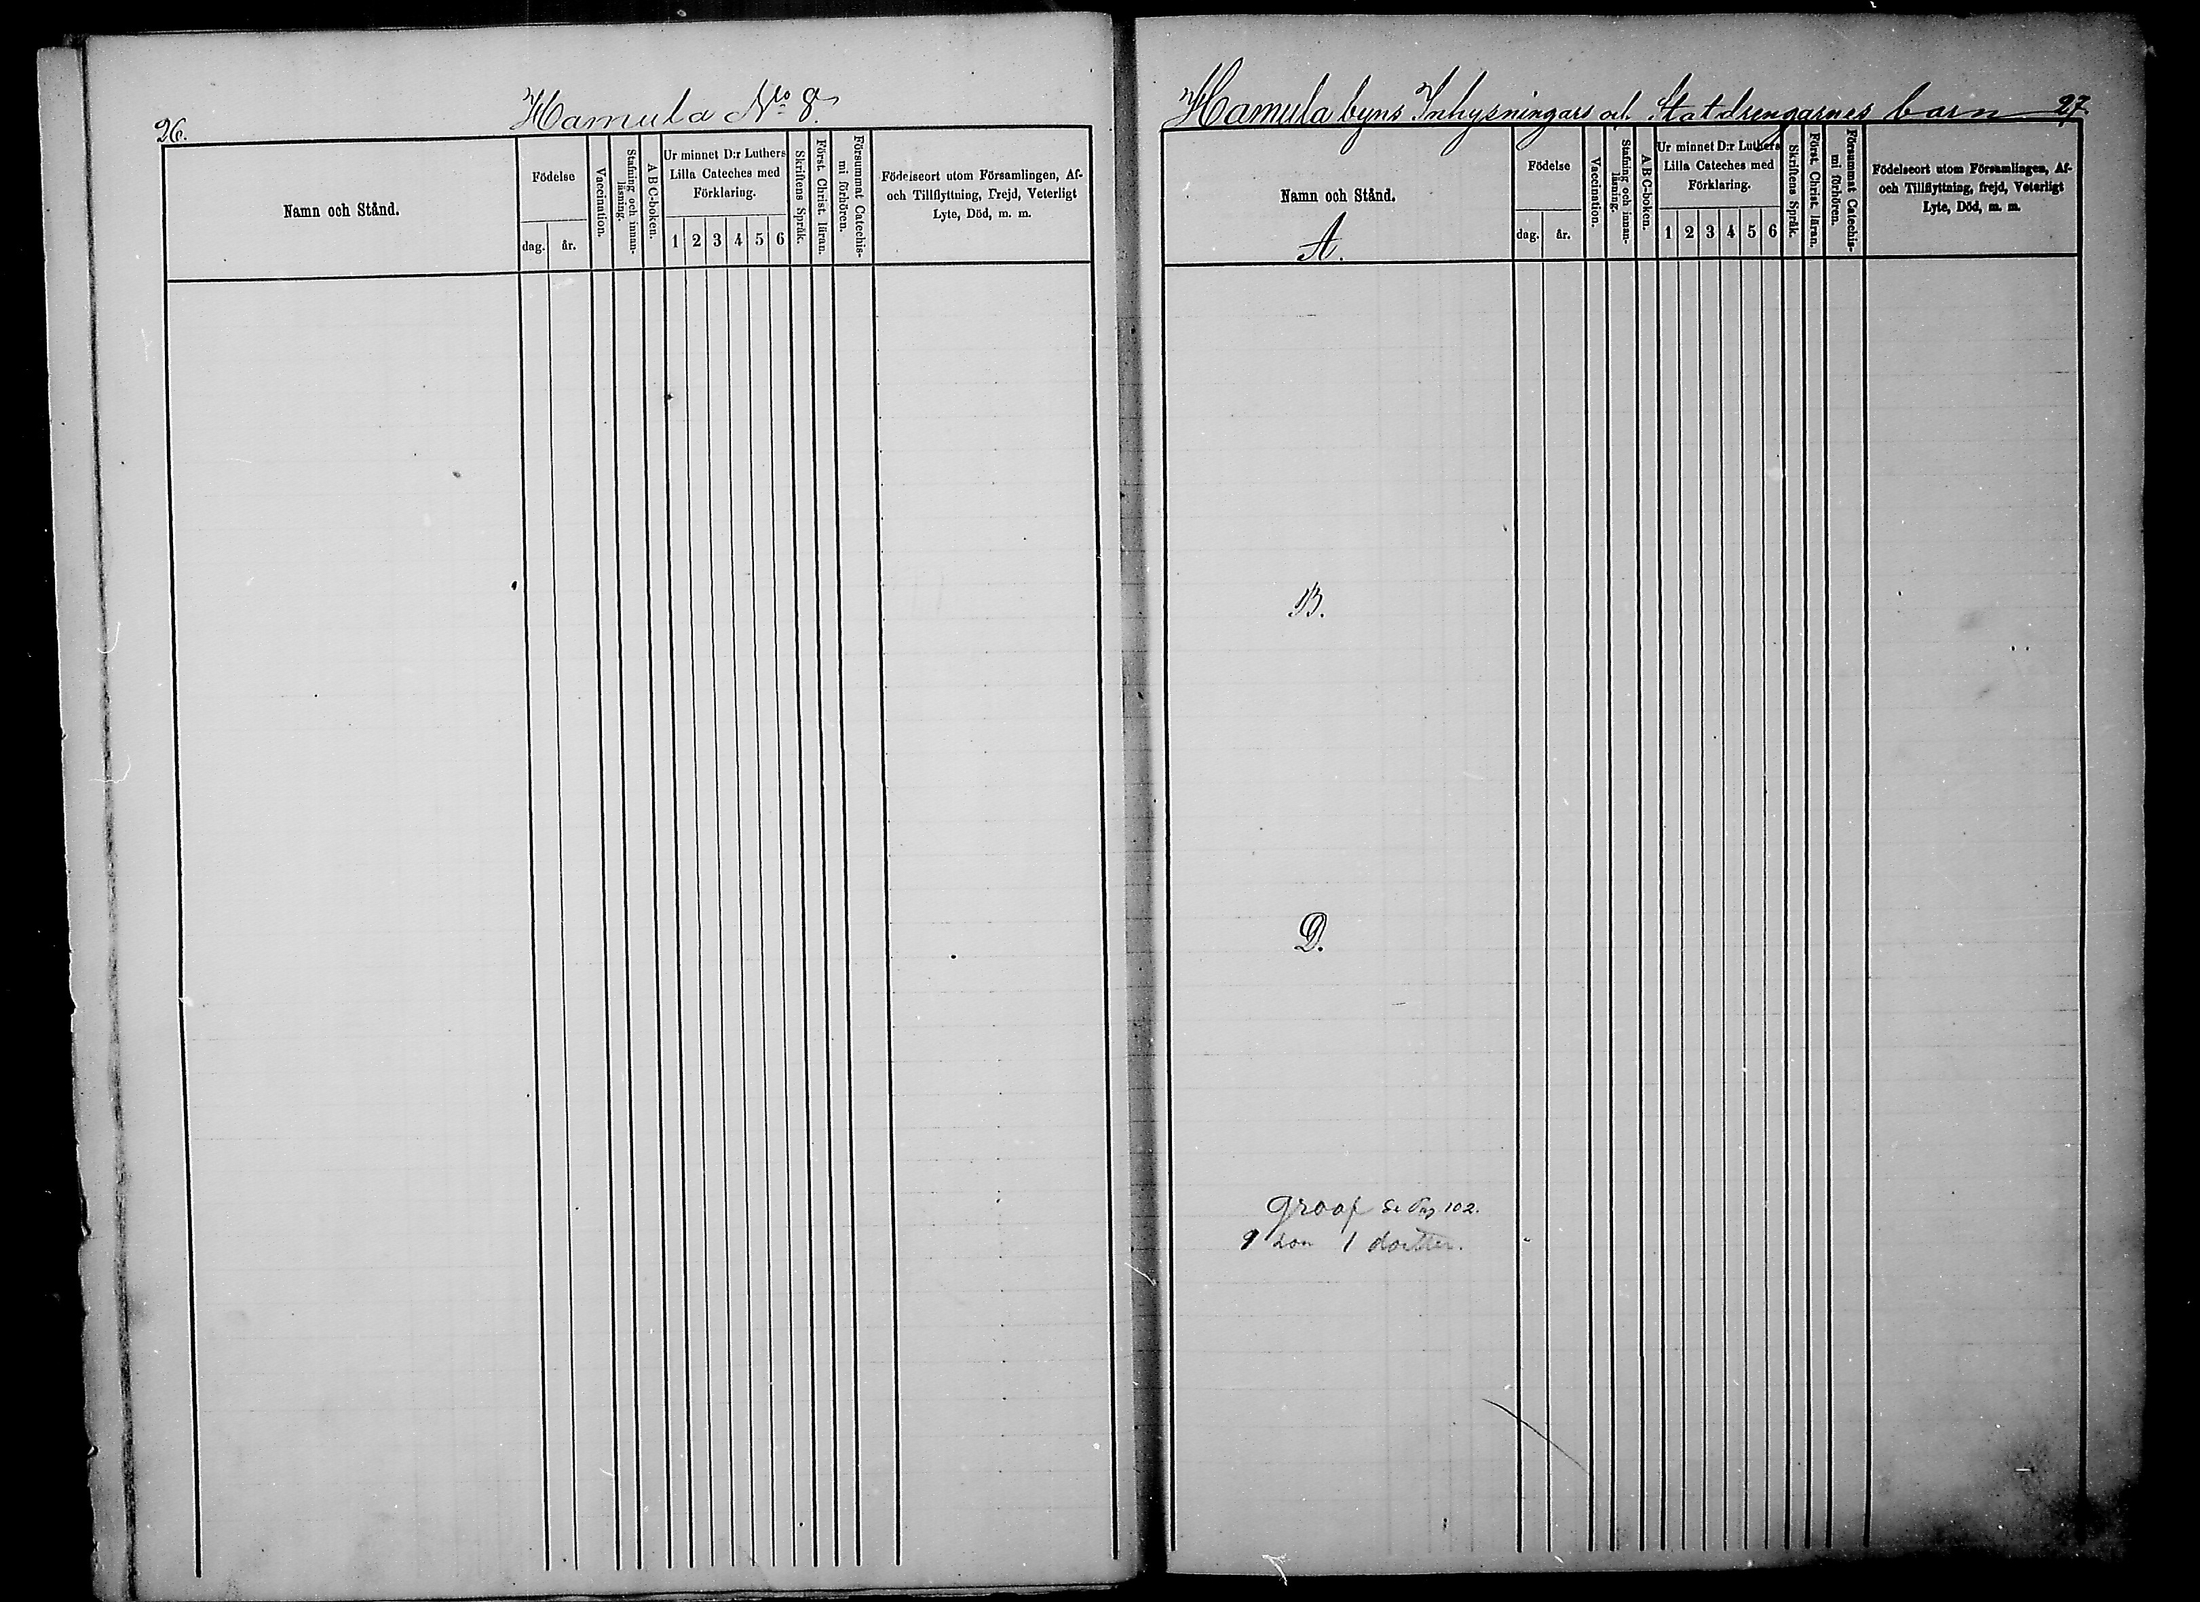 26.
Hamula No 8.
Namn och Stånd.
Födelse
dag.
år.
Vaccination.
Stafning och innan-
läsning.
ABC-boken.
Ur minnet D:r Luthers
Lilla Cateches med
Förklaring.
1 2 3 4 5 6
Skriftens Språk.
Först. Christ. läran.
Försummat Catechis-
mi förhören.
Födelseort utom Församlingen, Af-
och Tillflyttning, frejd, Veterligt
Lyte, Död, m. m.
Hamula byns Inhysningars och Statdrengarnes barn 27.
Namn och Stånd.
A.
Födelse
dag.
år.
Vaccination.
Stafning och innan-
läsning.
ABC-boken.
Ur minnet D:r Luthers
Lilla Cateches med
Förklaring.
1 2 3 4 5 6
Skriftens Språk.
Först. Christ. läran.
Försummat Catechis-
mi förhören.
Födelseort utom Församlingen, Af-
och Tillflyttning, frejd, Veterligt
Lyte, Död, m. m.
B.
D.
Graaf Se Pag 102.
1 dotter.